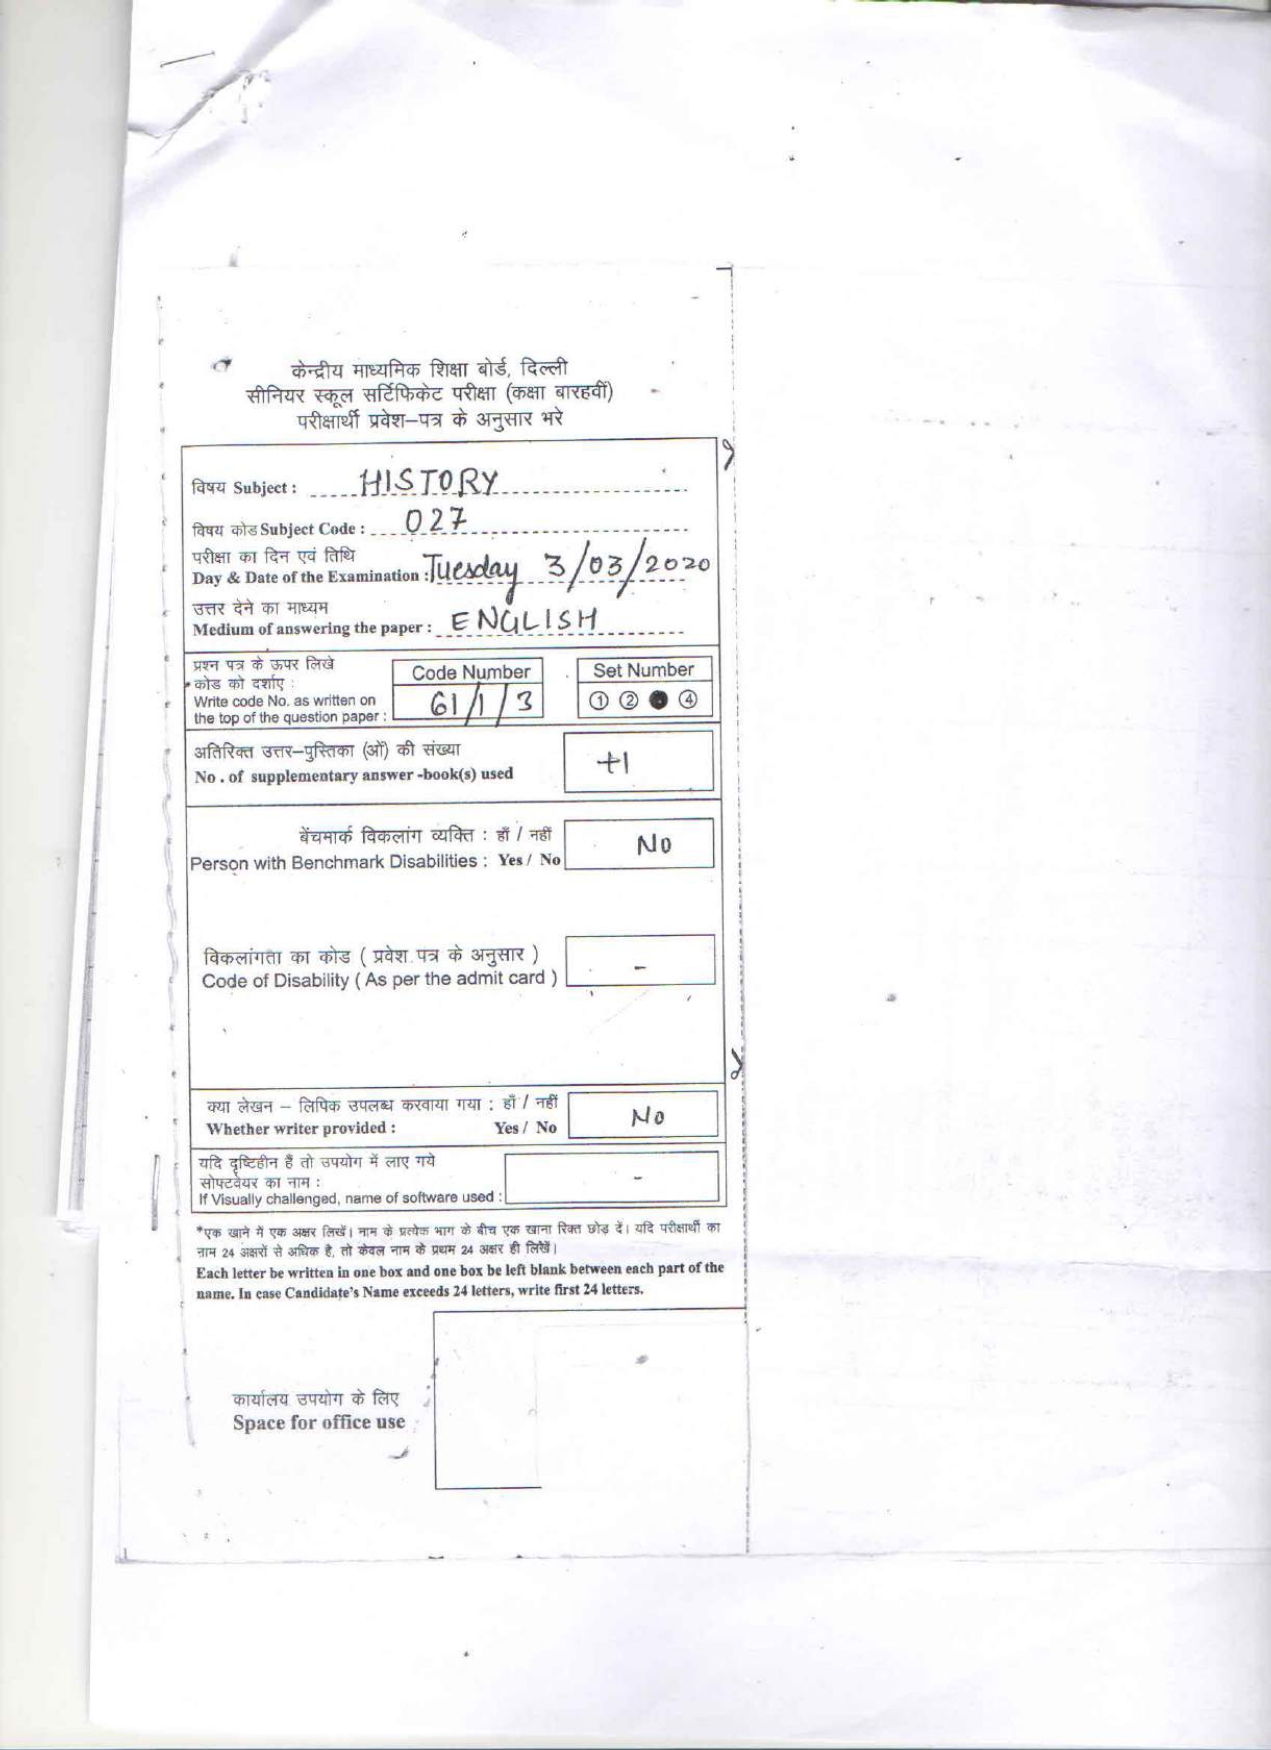 केन्द्रीय माध्यमिक शिक्षा बोर्ड, दिल्ली
सीनियर स्कूल सर्टिफिकेट परीक्षा (कक्षा बारहवीं)
परीक्षार्थी प्रवेश–पत्र के अनुसार भरे
विषय Subject : HISTORY
विषय कोड Subject Code : 027
परीक्षा का दिन एवं तिथि
Day & Date of the Examination : Tuesday 3/03/2020
उत्तर देने का माध्यम
Medium of answering the paper : ENGLISH
प्रश्न पत्र के ऊपर लिखे
कोड को दर्शाए :
Write code No. as written on
the top of the question paper :
Code Number
61/1/3
Set Number
① ② ● ④
अतिरिक्त उत्तर–पुस्तिका (ओं) की संख्या
No . of supplementary answer -book(s) used
+1
बेंचमार्क विकलांग व्यक्ति : हाँ / नहीं
Person with Benchmark Disabilities : Yes / No
No
विकलांगता का कोड ( प्रवेश पत्र के अनुसार )
Code of Disability ( As per the admit card )
-
क्या लेखन – लिपिक उपलब्ध करवाया गया : हाँ / नहीं
Whether writer provided : Yes / No
No
यदि दृष्टिहीन हैं तो उपयोग में लाए गये
सोफ्टवेयर का नाम :
If Visually challenged, name of software used :
-
*एक खाने में एक अक्षर लिखें। नाम के प्रत्येक भाग के बीच एक खाना रिक्त छोड़ दें। यदि परीक्षार्थी का
नाम 24 अक्षरों से अधिक है, तो केवल नाम के प्रथम 24 अक्षर ही लिखें।
Each letter be written in one box and one box be left blank between each part of the
name. In case Candidate's Name exceeds 24 letters, write first 24 letters.
कार्यालय उपयोग के लिए
Space for office use